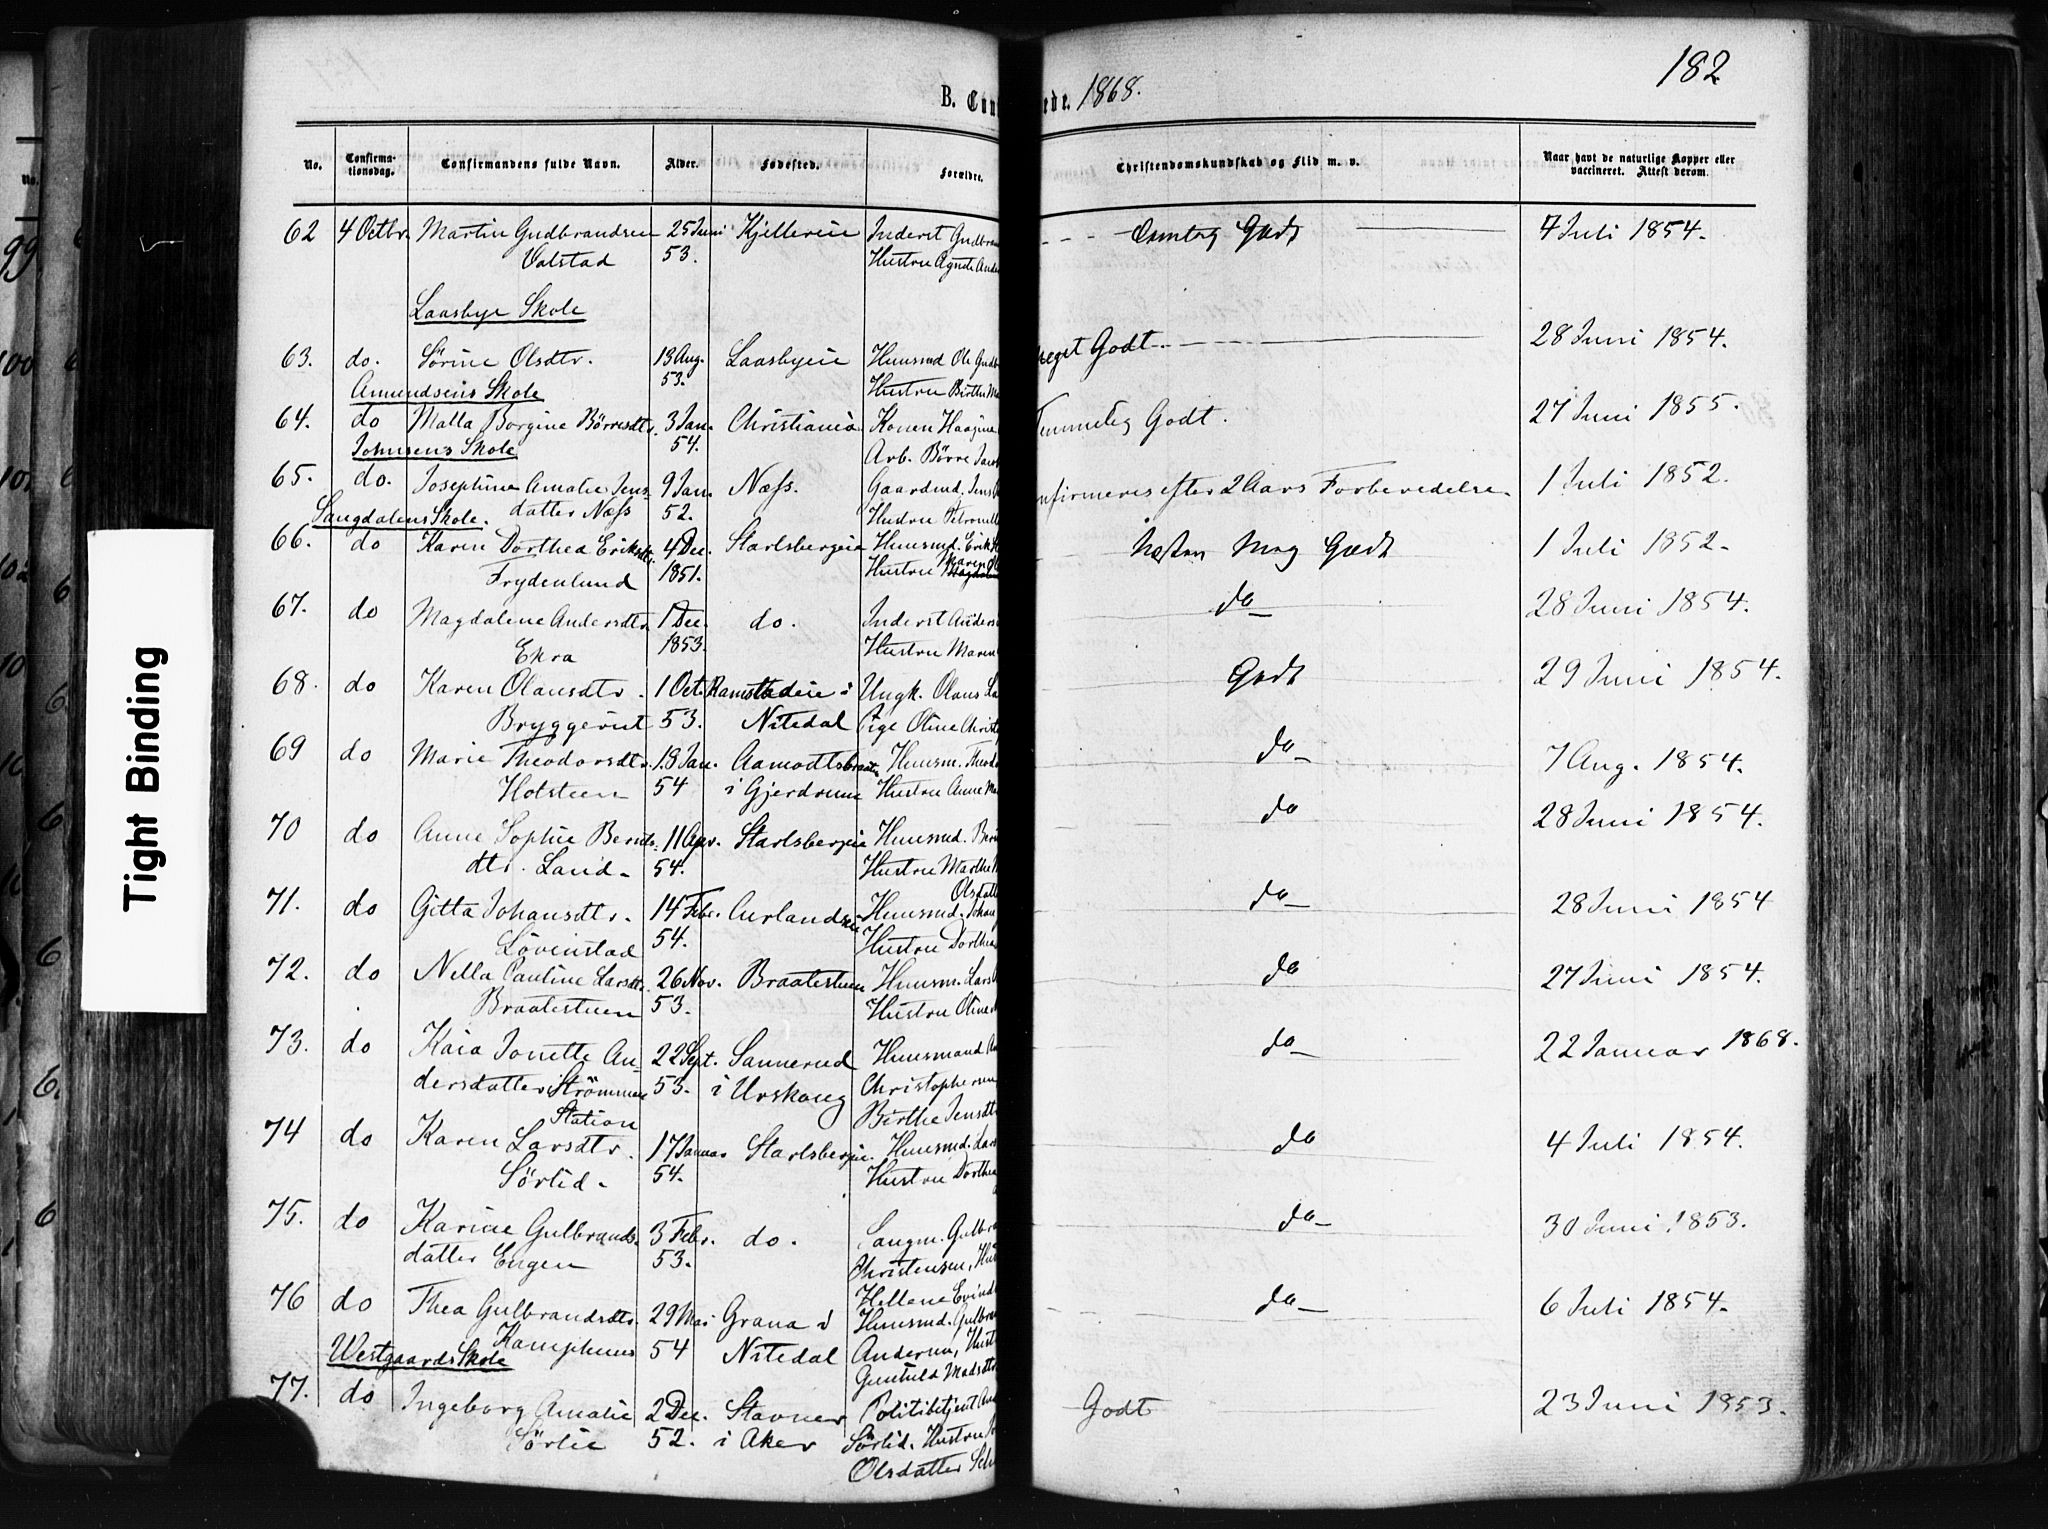 182
B. Con ede. 1868.
No. Confirma-tionsdag. Confirmandens fulde Navn. Alder. Fødested. Forældre. Christendomskundskab og Flid m. v. Naar havt de naturlige Kopper eller vaccineret. Attest derom.
62 4 Octbr. Martin Gudbrandsen 25 Juni Kjellereie Inderst Gudbran - - - Godt 7 Juli 1854.
Valstad 53. Hustru Agnete Ande
Laasbye Skole
63. do. Sörine Olsdtr. 13 Aug. Laasbyeie Huusmd Ole Gudb eget Godt. 28 Juni 1854.
53. Hustru Birthe Ma
Amundsens Skole
64. do Malla Borgine Börresdtr. 3 Jan. Christiania Konen Haagine Temmelig Godt. 27 Juni 1855.
54. Arb. Börre Jacob
Johnsens Skole
65. do. Josephine Amalie Jens- 9 Jan. Næss. Gaardmd. Jens nfirmeres efter 2 Aars Forberedelse. 1 Juli 1852.
datter Næss 52. Hustru Petronelle
Sangdalens Skole.
66. do Karen Dorthea Eriksdtr. 4 Dec. Starlsbergeie Huusmd. Erik Næsten Meg Godt 1 Juli 1852.
Frydenlund 1851. Hustru Maren
67. do Magdalene Andersdtr. 1 Dec. do. Inderst Anders do 28 Juni 1854.
Ekra 1853. Hustru Maren
68. do Karen Olausdtr. 1 Oct. Ramstadeie i Ungk. Olaus La Godt 29 Juni 1854.
Bryggerud 53. Nitedal Pige Oline Christ
69 do Marie Theodorsdtr. 13 Jan. Aamodtsbraaten Huusm. Theodo do 7 Aug. 1854.
Holsteen 54 i Gjerdrum Hustru Anne Ma
70 do Anne Sophie Bernts- 11 Apr. Starlsbergeie Huusmd. Ber do 28 Juni 1854.
dtr. Land. 54. Hustru Marthe
Olsdatt
71. do Gitta Johansdtr. 14 Febr. Aurlandseie Huusmd. Johan do 28 Juni 1854
Lövenstad 54. Hustru Dorthea
72. do Nella Pauline Larsdtr. 26 Nov. Braatestuen Huusm. Lars do 27 Juni 1854.
Braatestuen 53. Hustru Oline
73. do Kaia Jonette An- 22 Sept. Sannerud Huusmand An do 22 Januar 1868.
dersdatter Strömmen 53. i Urskoug Christophersen,
Station Birthe Jensdt
74 do Karen Larsdtr. 17 Januar Starlsbergeie. Huusmd. Lars do 4 Juli 1854.
Sörlid. 54. Hustru Dorthea
75. do Karine Gulbrands- 3 Febr. do. Saugm. Gulbra do 30 Juni 1853.
datter Engen 53. Christensen, Hus
Hellene Evind
76 do Thea Gulbrandsdtr. 29 Mai Grana i Huusmd. Gulbran do 6 Juli 1854.
Kamphuus 54 Nitedal Andersen, Hust
Westgaards Skole Gunhild Madsdtr
77. do Ingeborg Amalie 2 Dec. Stovner Politibetjent An Godt 23 Juni 1853.
Sörlie 52. i Aker Sörlid. Hustru
Olsdatter Sch
Tight Binding